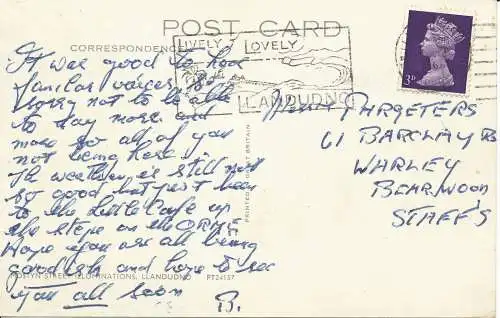 POST CARD
CORRESPONDENCE
LIVELY LOVELY
LLANDUDNO
3D
It was good to hear
familiar voices, so
sorry not to be able
to stay more and
more so all of you
not being here.
The weather is still not
so good but just been
to the Little Cafe up
the steps on the ORME
Hope you are all being
goodish and hope to see
you all soon
B.
PRINTED IN GREAT BRITAIN
MOSTYN STREET ILLUMINATIONS, LLANDUDNO. PT24157
PARGETERS
61 BARCLAY RD
WARLEY
BEARWOOD
STAFFS